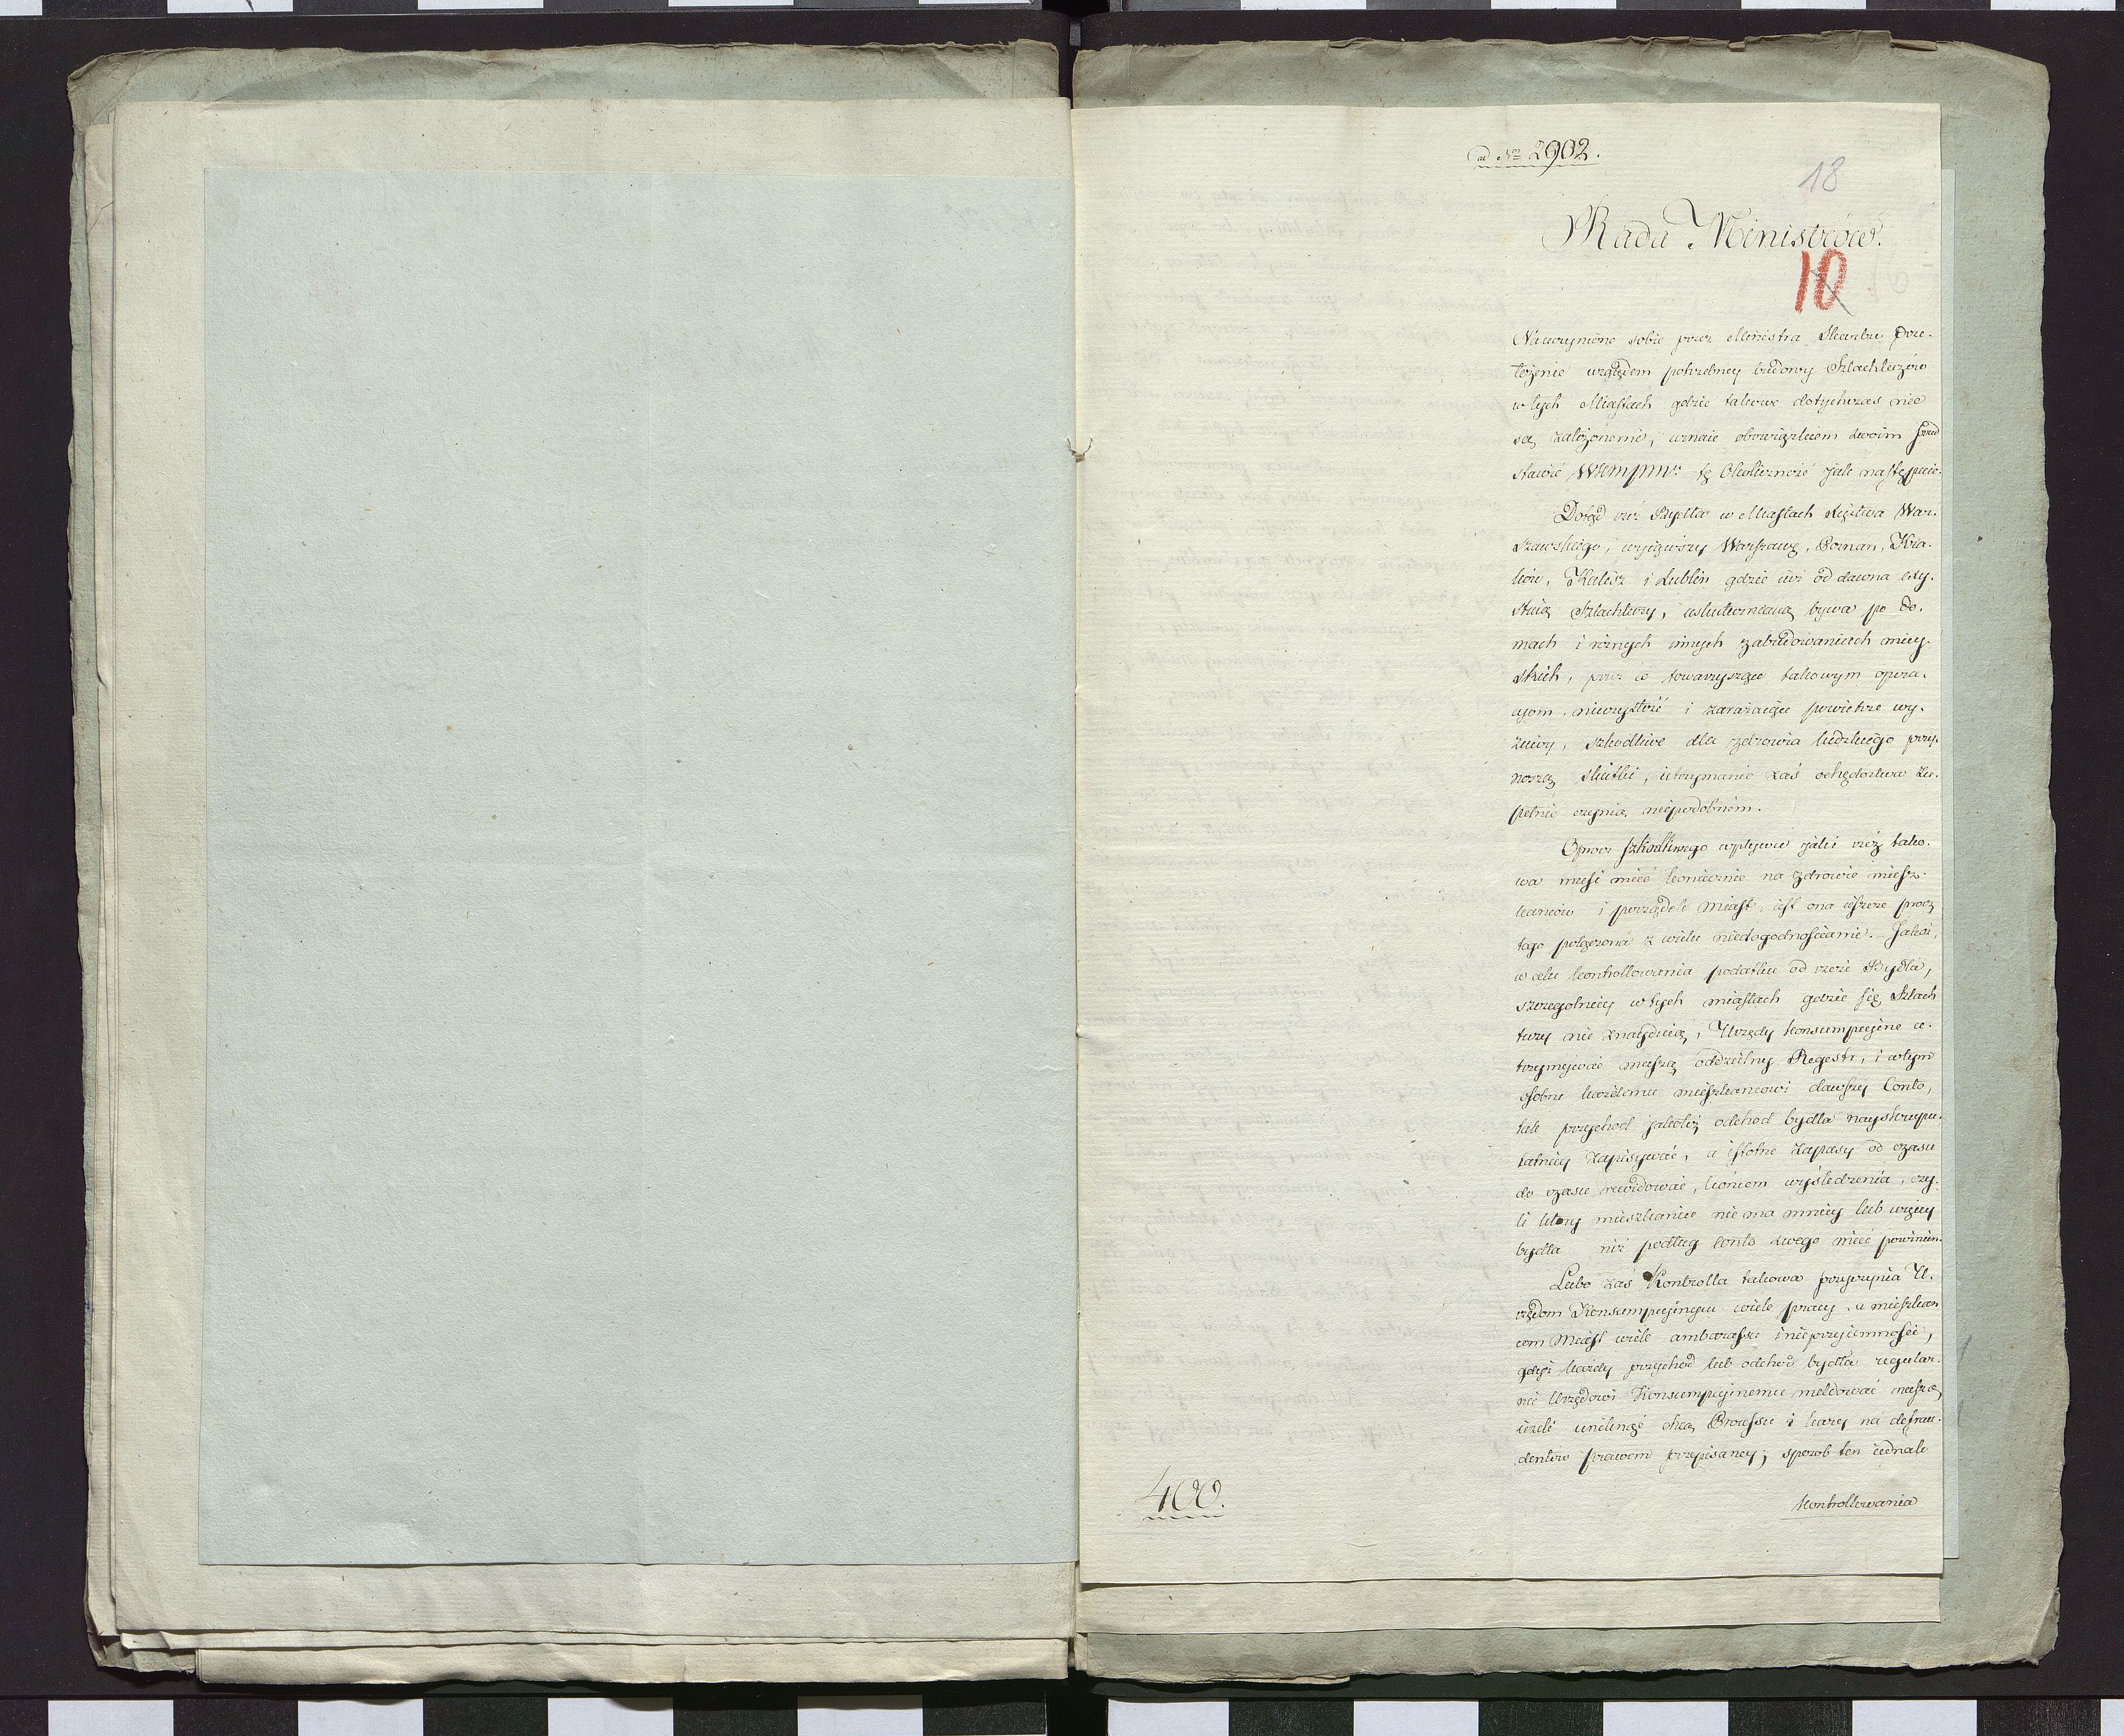 ad Nm 2902.
18
Rada Ministrów.
10
Na uczynione sobie przez Ministra Skarbu Prze-
łożenie względem potrzebney budowy Szlachtuzów
w tych Miastach gdzie takowe dotychczas nie
są założonemi, uznaie obowiązkiem swoim przed
stawić WKMPMu tę Okoliczność jak następuie.
Dotąd rześ Bydła w Miastach Xięstwa War-
szawskiego, wyiąwszy Warszawę, Poznan, Kra-
ków, Kalisz i Lublin gdzie iuż od dawna exy-
stuią Szlachtuzy, uskutecznianą bywa po do-
mach i różnych innych zabudowaniach miey-
skich, przez co towarzyszące takowym opera-
cyom, nieczystość i zarażaiące powietrze wy-
ziewy, szkodliwe dla zdrowia ludzkiego przy-
noszą skutki, utrzymanie zaś ochędostwa zu-
pełnie czynią niepodobném.
Oprocz szkodliwego wpływu jaki rzeź tako-
wa musi mieć koniecznie na zdrowie miesz-
kańców i porządek Miast, iest ona ieszcze procz
tego połączona z wielu niedogodnościami. Jakoż,
w celu kontrollowania podatku od rzezi Bydła,
szczegolniey w tych miastach gdzie się Szlach
tuzy nie znayduią, Urzędy Konsumpcyine u-
trzymywać muszą oddzielny Regestr, i w tym
osobne każdemu mieszkancowi dawszy Conto,
tak przychod jakoteż odchod bydła nayskrupu-
latniey zapisywać, a istotne zapasy od czasu
do czasu rewidować, końcem wyśledzenia, czy-
li ktory mieszkaniec nie ma mniey lub więcey
bydła niż podług Conto swego mieć powinien.
Lubo zaś Kontrolla takowa przyczynia U-
rzędom Konsumpcyinym wiele pracy, a mieszkan
com Miast wiele ambarassu i nieprzyiemności,
gdyż każdy przychod lub odchod bydła regular-
nie Urzędowi Konsumpcyinemu meldować muszą
ieżeli uniknąć chcą Processu i kary na defrau-
dantów prawem przepisaney; sposob ten iednak
kontrollowania
400.